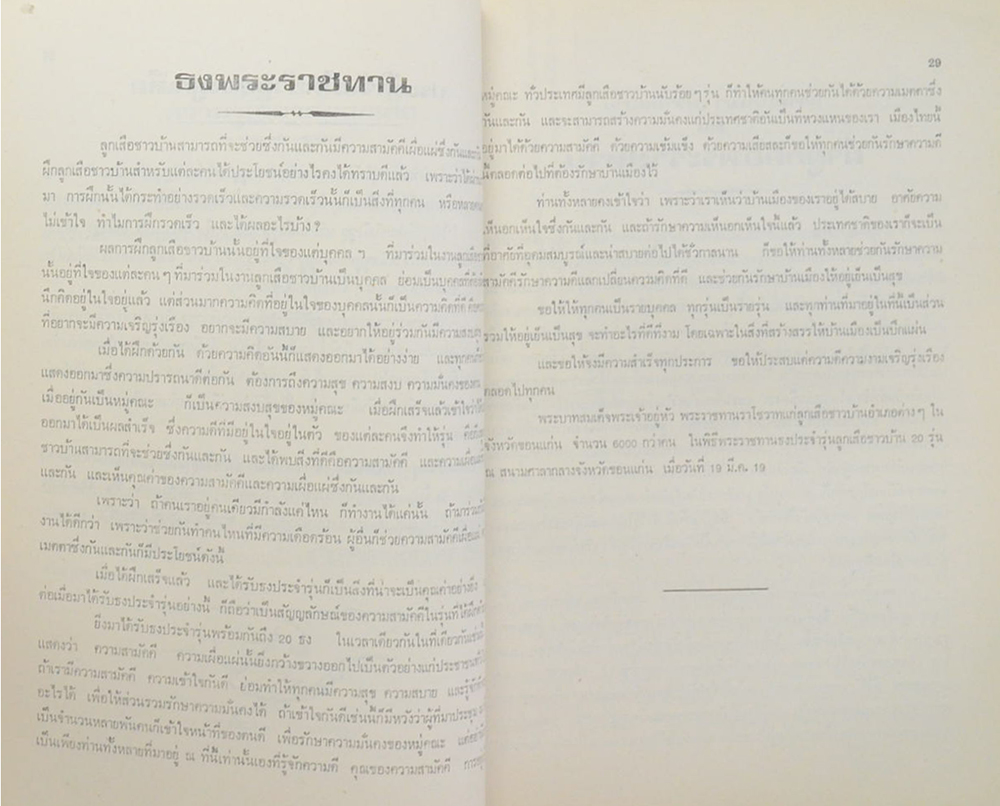 ธงพระราชทาน
ลูกเสือชาวบ้านสามารถที่จะช่วยซึ่งกันและกันมีความสามัคคีเผื่อแผ่ซึ่งกันและกัน
ฝึกลูกเสือชาวบ้านสำหรับแต่ละคนได้ประโยชน์อย่างไรคงได้ทราบดีแล้ว เพราะว่าได้ผ่าน
มา การฝึกนั้นได้กระทำอย่างรวดเร็วและความรวดเร็วนั้นก็เป็นสิ่งที่ทุกคน หรือหลายคน
ไม่เข้าใจ ทำไมการฝึกรวดเร็ว และได้ผลอะไรบ้าง?
ผลการฝึกลูกเสือชาวบ้านนั้นอยู่ที่ใจของแต่บุคคลๆ ที่มาร่วมในงานลูกเสือ
นั้นอยู่ที่ใจของแต่ละคนๆที่มาร่วมในงานลูกเสือชาวบ้านเป็นบุคคล ย่อมเป็นบุคคลที่
นึกคิดอยู่ในใจอยู่แล้ว แต่ส่วนมากความคิดที่อยู่ในใจของบุคคลนั้นก็เป็นความคิดที่ดี คือ
ที่อยากจะมีความเจริญรุ่งเรือง อยากจะมีความสบาย และอยากให้อยู่ร่วมกันมีความสงบสุข
เมื่อได้ฝึกด้วยกัน ด้วยความคิดอันนี้ก็แสดงออกมาได้อย่างง่าย และทุกคน
แสดงออกมาซึ่งความปรารถนาดีต่อกัน ต้องการถึงความสุข ความสงบ ความมั่นคงของ
เมื่ออยู่กันเป็นหมู่คณะ ก็เป็นความสงบสุขของหมู่คณะ เมื่อฝึกเสร็จแล้วเข้าใจว่า
ออกมาได้เป็นผลสำเร็จ ซึ่งความดีที่มีอยู่ในใจอยู่ในตัว ของแต่ละคนจึงทำให้รุ่น
ชาวบ้านสามารถที่จะช่วยซึ่งกันและกัน และได้พบสิ่งที่ดีคือความสามัคคี และความเผื่อแผ่
และกัน และเห็นคุณค่าของความสามัคคีและความเผื่อแผ่ซึ่งกันและกัน
เพราะว่า ถ้าคนเราอยู่คนเดียวมีกำลังแค่ไหน ก็ทำงานได้แค่นั้น ถ้ามาร่วมกัน
งานได้ดีกว่า เพราะว่าช่วยกันทำคนไหนที่มีความเดือดร้อน ผู้อื่นก็ช่วยความสามัคคีเผื่อแผ่
เมตตาซึ่งกันและกันก็มีประโยชน์ดังนี้
เมื่อได้ฝึกเสร็จแล้ว และได้รับธงประจำรุ่นก็เป็นสิ่งที่น่าจะเป็นคุณค่าอย่างยิ่ง
ต่อเมื่อมาได้รับธงประจำรุ่นอย่างนี้ ก็ถือว่าเป็นสัญญลักษณ์ของความสามัคคีในรุ่นที่ได้ฝึก
ยิ่งมาได้รับธงประจำรุ่นพร้อมกันถึง 20 ธง ในเวลาเดียวกันในที่เดียวกัน
แสดงว่า ความสามัคคี ความเผื่อแผ่นั้นยิ่งกว้างขวางออกไปเป็นตัวอย่างแก่ประชาชน
ถ้าเรามีความสามัคคี ความเข้าใจกันดี ย่อมทำให้ทุกคนมีความสุข ความสบาย และรู้จัก
อะไรได้ เพื่อให้ส่วนรวมรักษาความมั่นคงได้ ถ้าเข้าใจกันดีเช่นนี้ก็มีหวังว่าผู้ที่มาประชุม
เป็นจำนวนหลายพันคนก็เข้าใจหน้าที่ของตนดี เพื่อรักษาความมั่นคงของหมู่คณะ
เป็นเพียงท่านทั้งหลายที่มาอยู่ ณ ที่นี้เท่านั้นเองที่รู้จักความดี คุณของความสามัคคี
29
หมู่คณะ ทั่วประเทศมีลูกเสือชาวบ้านนับร้อยๆรุ่น ก็ทำให้คนทุกคนช่วยกันได้ด้วยความเมตตาซึ่ง
กันและกัน และจะสามารถสร้างความมั่นคงแก่ประเทศชาติอันเป็นที่หวงแหนของเรา เมืองไทยนี้
อยู่มาได้ด้วยความสามัคคี ด้วยความเข้มแข็ง ด้วยความเสียสละก็ขอให้ทุกคนช่วยกันรักษาความดี
นี้ตลอดต่อไปที่ต้องรักษาบ้านเมืองไว้
ท่านทั้งหลายคงเข้าใจว่า เพราะว่าเราเห็นว่าบ้านเมืองของเราอยู่ได้สบาย อาศัยความ
เห็นอกเห็นใจซึ่งกันและกัน และถ้ารักษาความเห็นอกเห็นใจนี้แล้ว ประเทศชาติของเราก็จะเป็น
ที่อาศัยที่อุดมสมบูรณ์และน่าสบายต่อไปได้ชั่วกาลนาน ก็ขอให้ท่านทั้งหลายช่วยกันรักษาความ
สามัคคีรักษาความดีแลกเปลี่ยนความคิดที่ดี และช่วยกันรักษาบ้านเมืองให้อยู่เย็นเป็นสุข
ขอให้ให้ทุกคนเป็นรายบุคคล ทุกรุ่นเป็นรายรุ่น และทุกท่านที่มาอยู่ในที่นี้เป็นส่วน
รวมให้อยู่เย็นเป็นสุข จะทำอะไรที่ดีที่งาม โดยเฉพาะในสิ่งที่สร้างสรรให้บ้านเมืองเป็นปึกแผ่น
และขอให้จงมีความสำเร็จทุกประการ ขอให้ประสบแต่ความดีความงามเจริญรุ่งเรือง
ตลอดไปทุกคน
พระบาทสมเด็จพระเจ้าอยู่หัว พระราชทานราโชวาทแก่ลูกเสือชาวบ้านอำเภอต่างๆ ใน
จังหวัดขอนแก่น จำนวน 6000 กว่าคน ในพิธีพระราชทานธงประจำรุ่นลูกเสือชาวบ้าน 20 รุ่น
ณ สนามศาลากลางจังหวัดขอนแก่น เมื่อวันที่ 19 มี.ค. 19